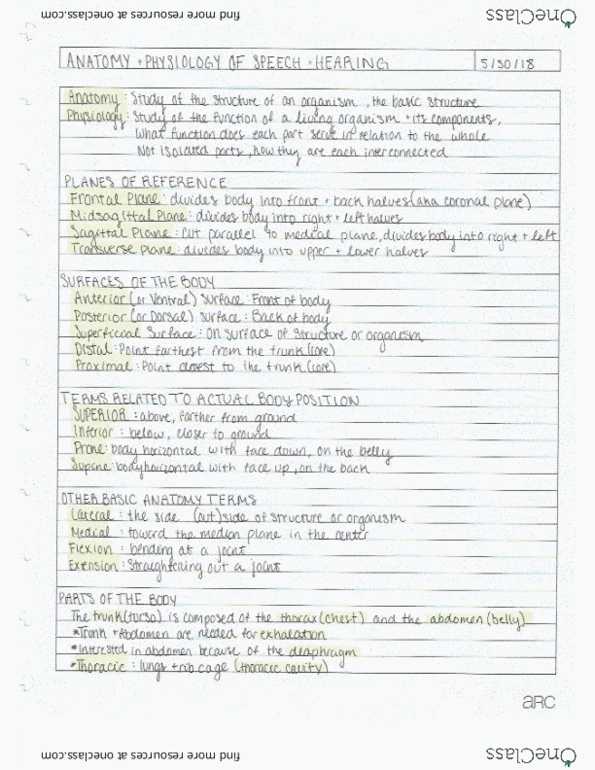 find more resources at oneclass.com
OneClass
ANATOMY + PHYSIOLOGY OF SPEECH + HEARING
5/30/18
Anatomy: Study of the structure of an organism, the basic structure
Physiology: Study of the function of a living organism + its components,
What function does each part serve in relation to the whole
Not isolated parts, how they are each interconnected
PLANES OF REFERENCE
Frontal Plane: divides body into front + back halves (aka coronal plane)
Midsagittal Plane: divides body into right + left halves
Sagittal Plane: cut parallel to medical plane, divides body into right + left
Transverse Plane: divides body into upper + lower halves
SURFACES OF THE BODY
Anterior (or Ventral) Surface: Front of body
Posterior (or Dorsal) Surface: Back of body
Superficial Surface: On surface of structure or organism
Distal: Point farthest from the trunk (core)
Proximal: Point closest to the trunk (core)
TERMS RELATED TO ACTUAL BODY POSITION
SUPERIOR: above, farther from ground
Inferior: below, closer to ground
Prone: body horizontal with face down, on the belly
Supine: body horizontal with face up, on the back
OTHER BASIC ANATOMY TERMS
Lateral: the side (out)side of structure or organism
Medial: toward the median plane in the center
Flexion: bending at a joint
Extension: Straightening out a joint
PARTS OF THE BODY
The trunk (torso) is composed of the thorax (chest) and the abdomen (belly)
*Trunk + Abdomen are needed for exhalation
*Interested in abdomen because of the diaphragm
*Thoracic: lungs + rib cage (thoracic cavity)
aRC
find more resources at oneclass.com
OneClass